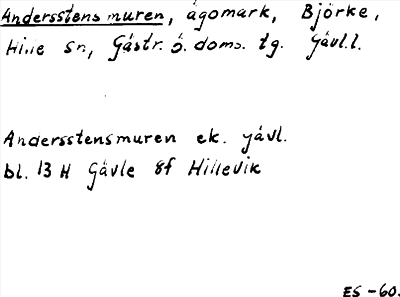 Andersstensmuren, ägomark, Björke,
Hille sn, Gästr. ö. doms. tg. Gävl.l.
Andersstensmuren ek. gävl.
bl. 13 H Gävle 8f Hillevik
ES-60.